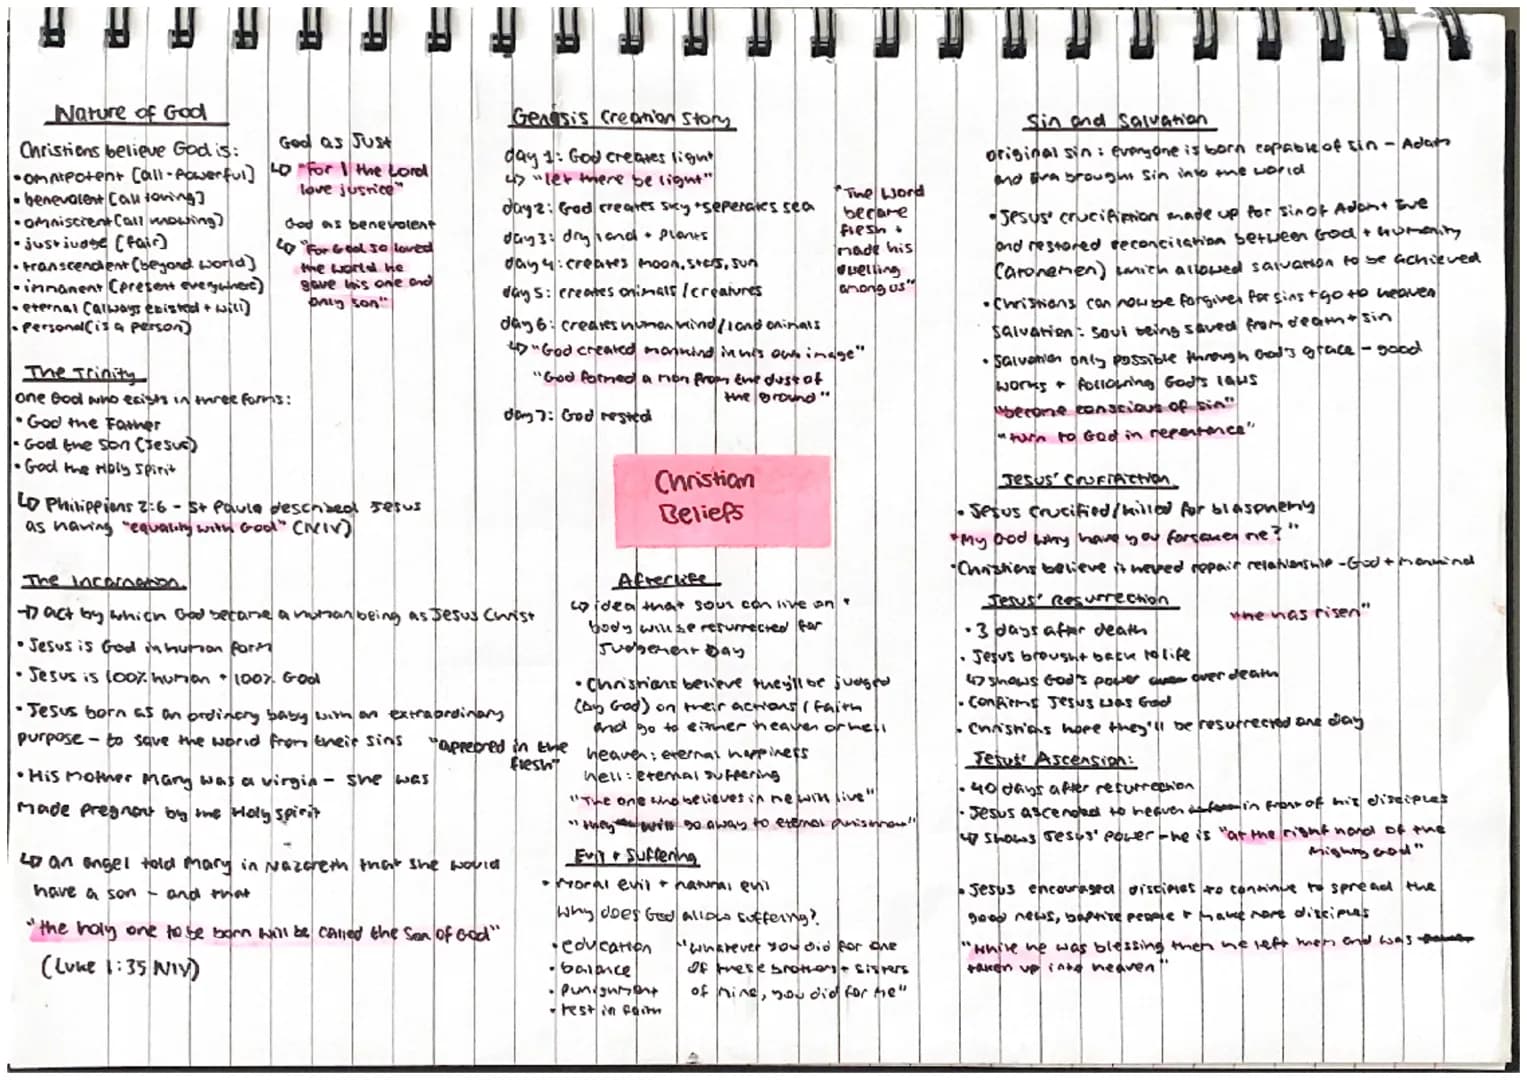 Nature of God
Christians believe God is:
• omnipotent [all-powerful]
• benevolent [all loving]
• omniscient (all knowing)
• just judge [fair)
• transcendent (beyond world)
• immanent (present everywhere)
• eternal (always existed + will)
• personal (is a person)
God as just
↳ "For I the Lord
love justice"
God as benevolent
↳ "For God so loved
the world he
gave his one and
only son"
The Trinity
one God who exists in three forms:
• God the Father
• God the Son (Jesus)
• God the Holy Spirit
↳ Philippians 2:6 - St Paula described Jesus
as having "equality with God" (NIV)
The Incarnation
→ act by which God became a human being as Jesus Christ
• Jesus is God in human form
• Jesus is 100% human + 100% God
• Jesus born as an ordinary baby with an extraordinary
purpose - to save the world from their sins
"appeared in the
flesh"
• His mother Mary was a virgin - she was
made pregnant by the Holy Spirit
↳ an angel told Mary in Nazareth that she would
have a son - and that
"the holy one to be born will be called the Son of God"
(Luke 1:35 NIV)
Genesis Creation Story
day 1: God creates light
↳ "let there be light"
day 2: God creates sky + seperates sea
day 3: dry land + plants
day 4: creates moon, stars, sun
day 5: creates animals/creatures
day 6: creates human kind/land animals
↳ "God created mankind in his own image"
"God formed a man from the dust of
the ground"
day 7: God rested
"The Word
became
flesh +
made his
dwelling
among us"
Christian
Beliefs
Afterlife
↳ idea that soul can live on +
body will be resurrected for
Judgement Day
• Christians believe they'll be judged
(by God) on their actions / faith
and go to either heaven or hell
heaven: eternal happiness
hell: eternal suffering
"The one who believes in me will live"
"they will go away to eternal punishment"
Evil + Suffering
• moral evil + natural evil
why does God allow suffering?
• education
• balance
• punishment
• test in faith
"whatever you did for one
of these brothers + sisters
of mine, you did for me"
Sin and Salvation
original sin: everyone is born capable of sin - Adam
and Eva brought sin into the world
• Jesus' crucifiction made up for sin of Adam + Eve
and restored reconcilation between God + humanity
(atonemen) which allowed salvation to be achieved
• Christians can now be forgiven for sins + go to heaven
salvation: soul being saved from death + sin
• Salvation only possible through God's grace - good
works + following God's laws
"become conscious of sin"
"turn to God in repentence"
Jesus' Crucifiction
• Jesus crucified/killed for blasphemy
"My God why have you forsaken me?"
• Christians believe it helped repair relationship - God + mankind
Jesus' Resurrection
"he has risen"
• 3 days after death
• Jesus brought back to life
↳ shows God's power over death
• confirms Jesus was God
• Christians hope they'll be resurrected one day
Jesus' Ascension:
• 40 days after resurrection
• Jesus ascended to heaven in front of his disciples
↳ shows Jesus' power - he is "at the right hand of the
Mighty God"
• Jesus encouraged disciples to continue to spread the
good news, baptise people + make more disciples
"while he was blessing them he left them and was
taken up into heaven"